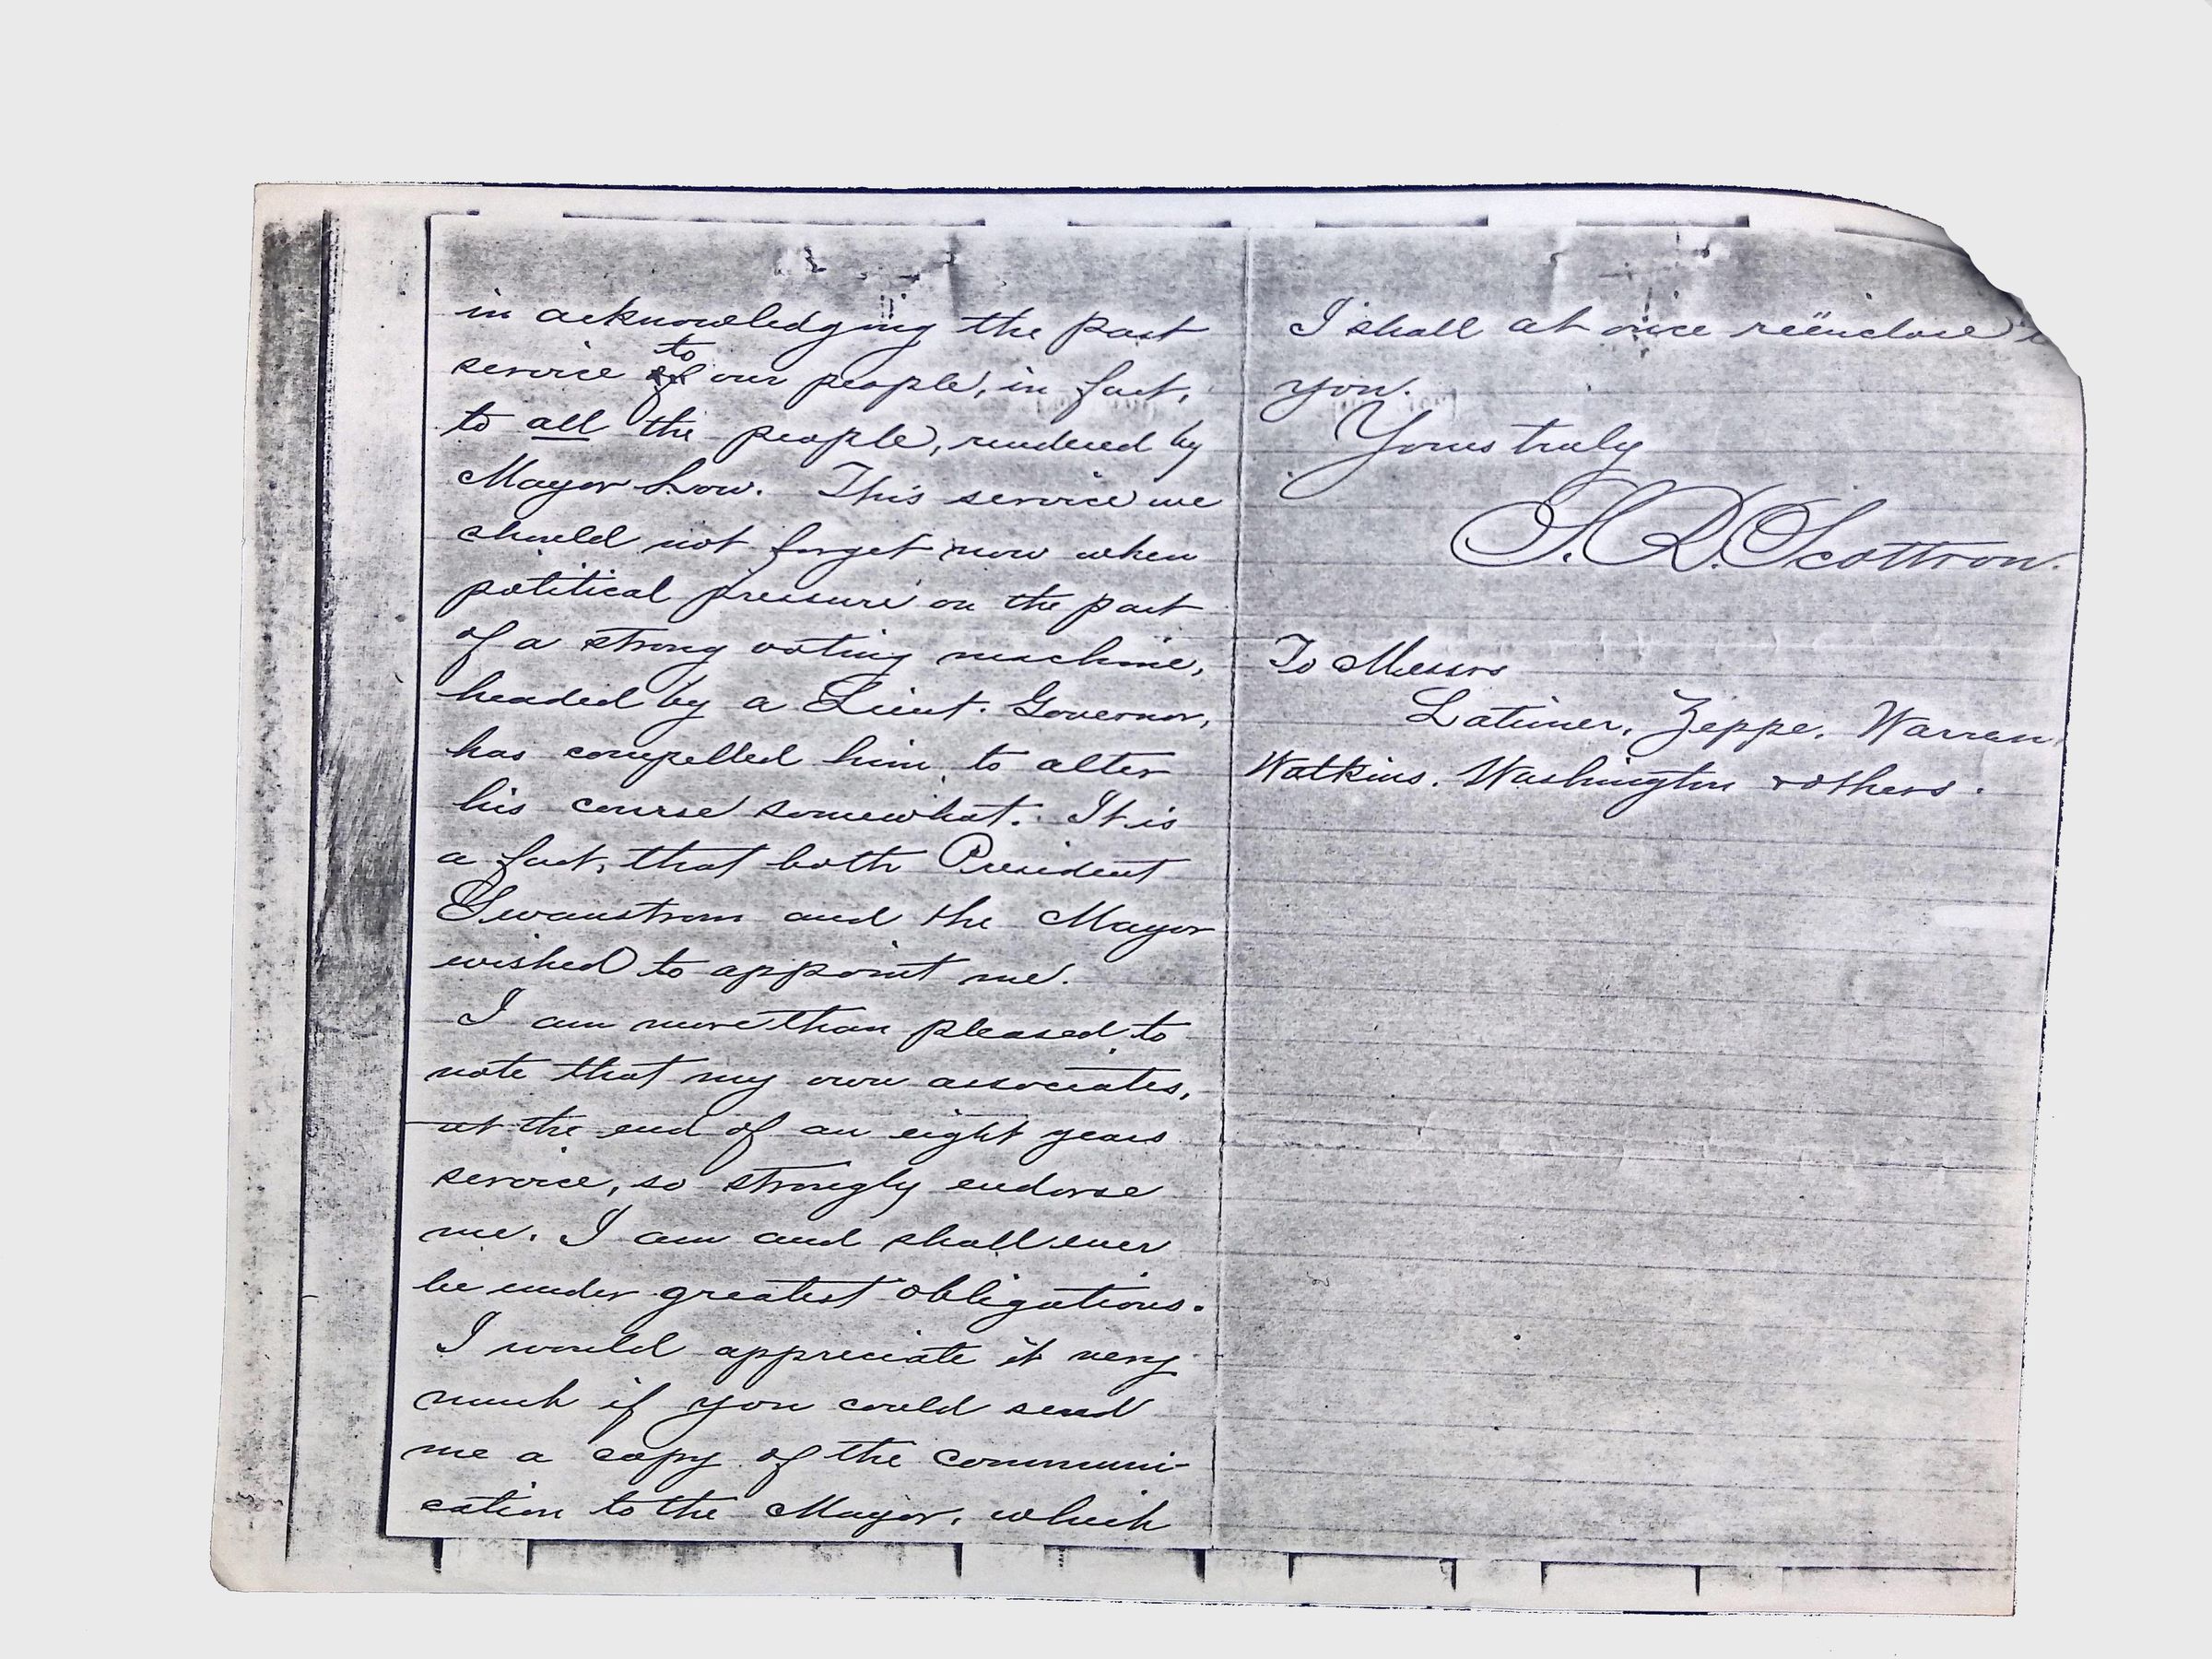 in acknowledging the past
to
service of our people, in fact,
to all the people, rendered by
Mayor Low. This service we
should not forget now when
political pressure on the part
of a strong voting machine,
headed by a Lieut. Governor,
has compelled him to alter
his course somewhat. It is
a fact, that both President
Swanstrom and the Mayor
wished to appoint me.
I am more than pleased to
note that my own associates,
at the end of an eight years
service, so strongly endorse
me. I am and shall ever
be under greatest obligations.
I would appreciate it very
much if you could send
me a copy of the communi-
cation to the Mayor, which
I shall at once reënclose
you.
Yours truly
S. R. Scottron.
To Messrs
Latimer, Zeppe, Warren,
Watkins, Washington & others.